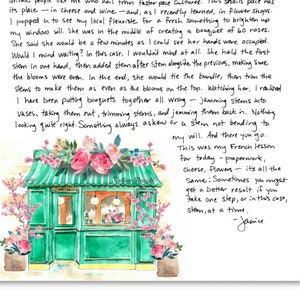 its place — in cheese and wine — and, as I recently learned, in flower shops.
I popped in to see my local fleuriste for a fresh something to brighten up
my window sill. She was in the middle of creating a bouquet of 60 roses.
She said she would be a few minutes as I could see her hands were occupied.
Would I mind waiting? In this case, I wouldn't mind at all. She held the first
stem in one hand, then added stem after stem alongside the previous, making sure
the blooms were even. In the end, she would tie the bundle, then trim the
stems to make them as even as the blooms on the top. Watching her, I realized
I have been putting bouquets together all wrong — jamming stems into
vases, taking them out, trimming stems, and jamming them back in. Nothing
looking quite right. Something always askew or a stem not bending to
my will. And there you go.
This was my French lesson
for today — paperwork,
cheese, flowers — it's all the
same: Sometimes you might
get a better result if you
take one step, or in this case,
stem, at a time.
-Janice